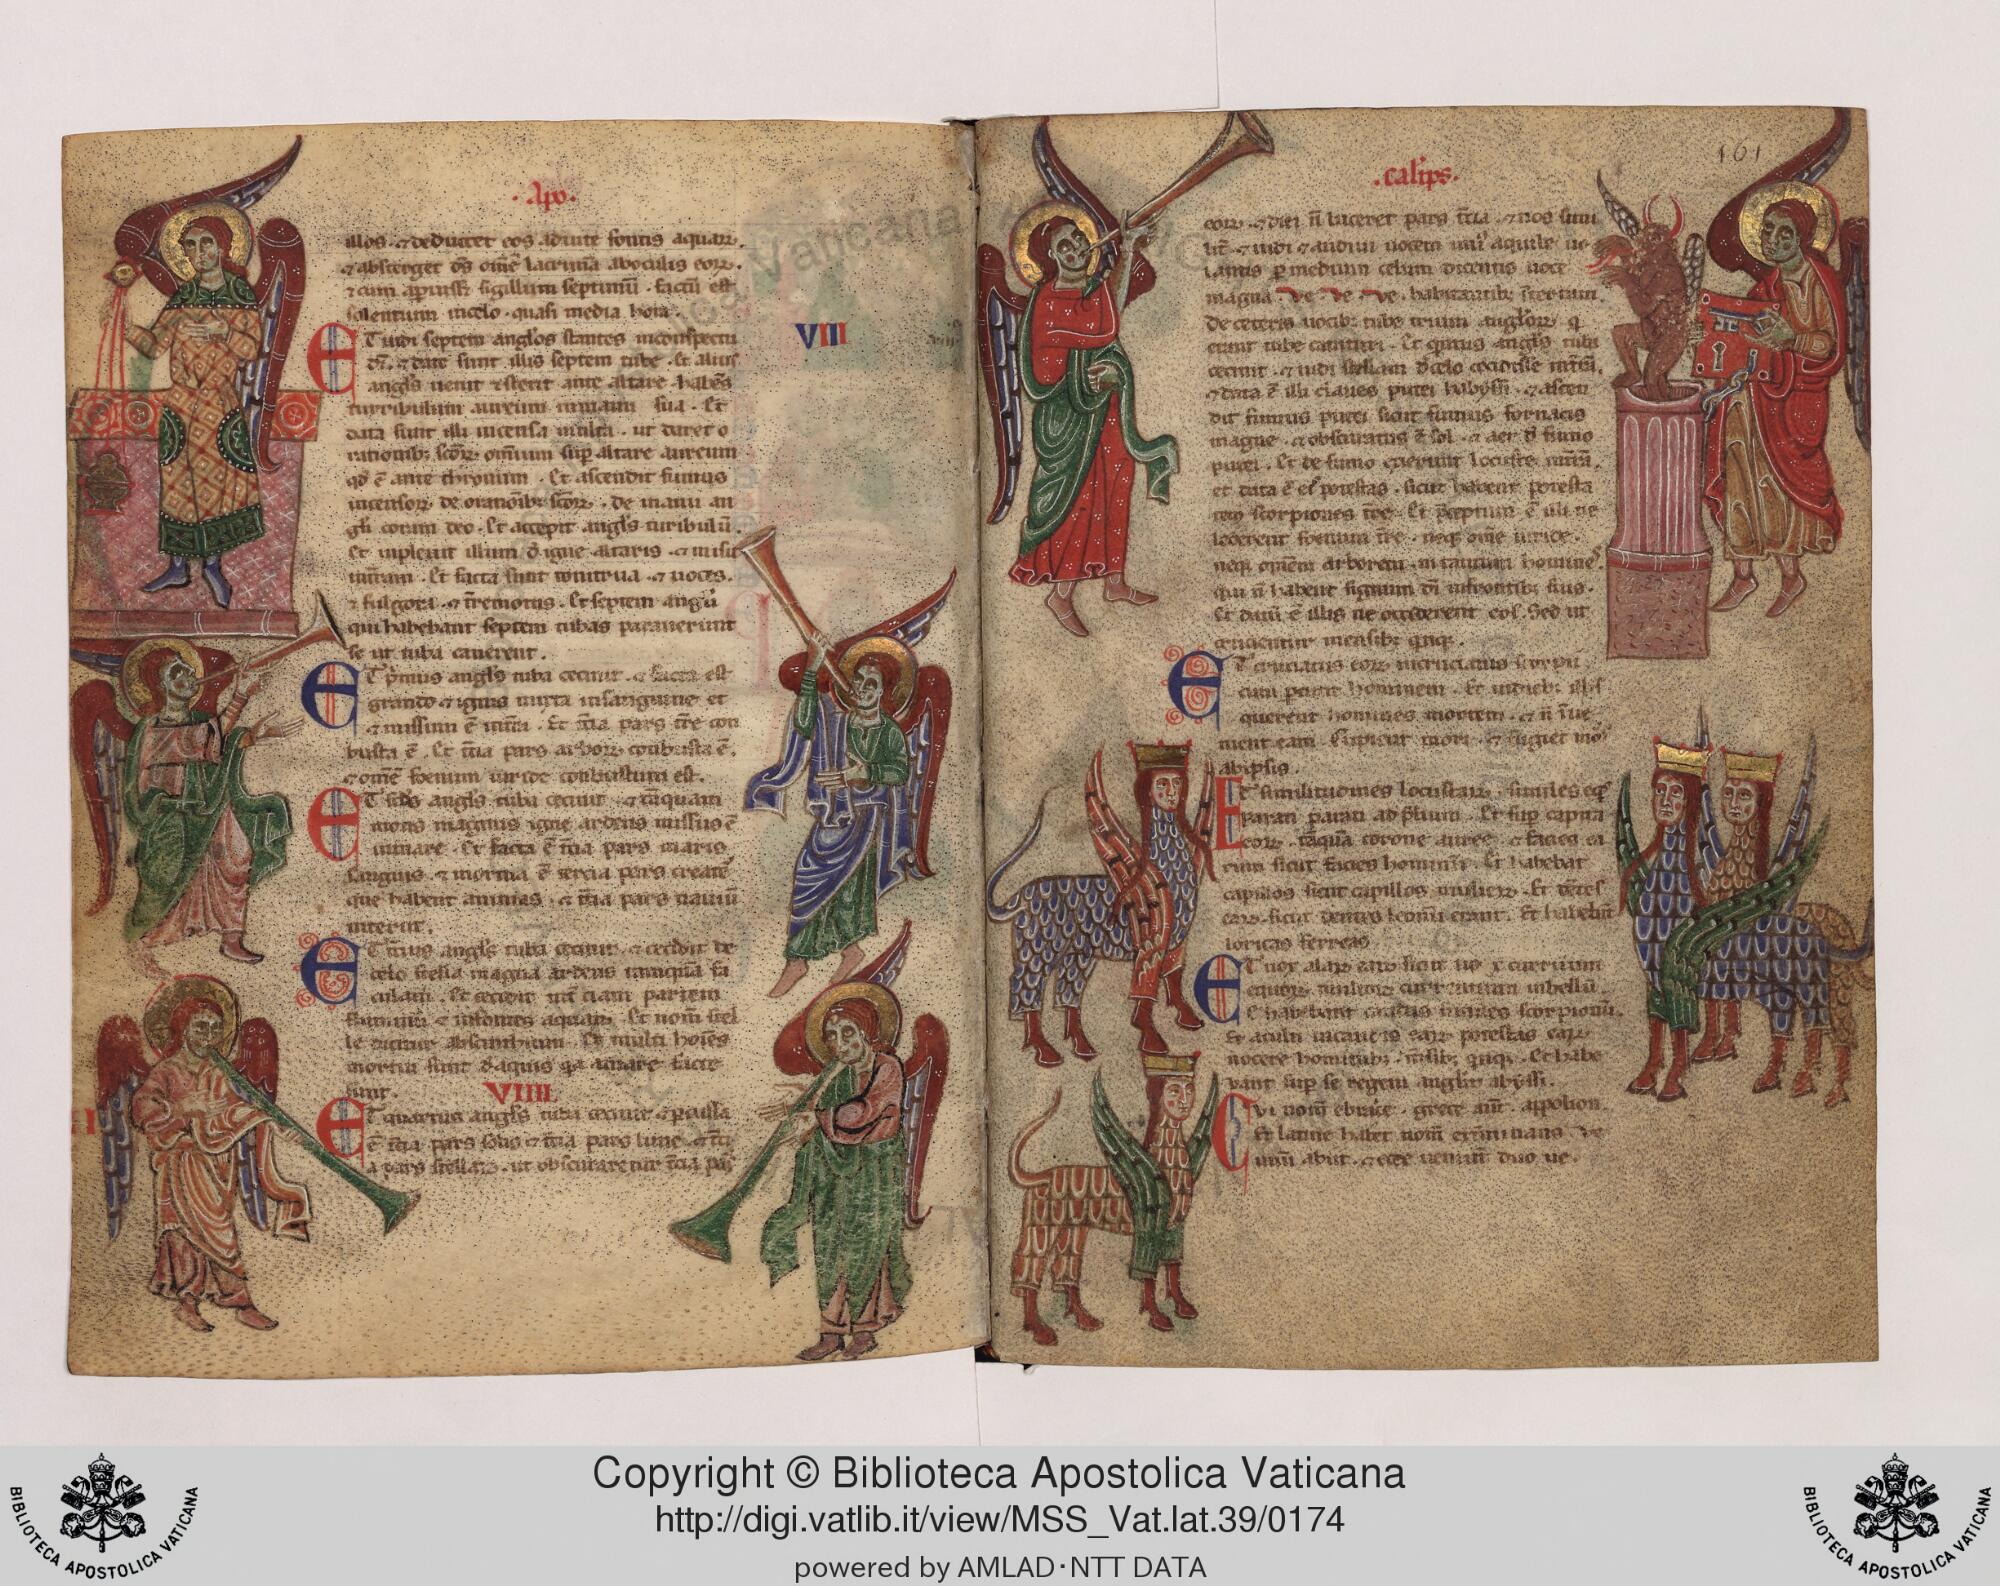 · Apo ·
illos · ⁊ deducet eos ad uite fontis aquaꝝ.
⁊ absterget ds̄ om̄e lacrimā aboculis eoꝝ.
⁊ cum aperuiss; sigillum septimū. factū est
silentium incelo · quasi media hora.
ET uidi septem angl̄os stantes inconspectu
dī. ⁊ date sunt illis septem tube. Et alius
angl̄s uenit ⁊ stetit ante altare habēs
turribulum aureum inmanu sua. Et
data sunt illi incensa multa. ut daret o
rationib; scōꝝ omnium sup̄ altare aureum
qd̄ ē ante thronum. Et ascendit fumus
incensoꝝ de orationib; scōꝝ. de manu an
gli coram deo. Et accepit angl̄s turibulū
Et inpleuit illum d̄ igne altaris. ⁊ misit
intr̄am. Et facta sunt tonitrua. ⁊ uoces.
⁊ fulgora. ⁊ tr̄emotus. Et septem angl̄i
qui habebant septem tubas parauerunt
se ut tuba canerent.
ET p̄mus angl̄s tuba cecinit. ⁊ facta est
grando ⁊ ignis mixta insanguine et
⁊ missum ē intr̄a. Et t̄cia pars tr̄e con
busta ē. Et t̄cia pars arboꝝ conbusta ē.
⁊ om̄e foenum uiride conbustum est.
ET scd̄s angl̄s tuba cecinit. ⁊ tāquam
mons magnus igne ardens missus ē
inmare. Et facta ē t̄cia pars maris
sanguis. ⁊ mortua ē tercia pars creatē
que habent animas. ⁊ t̄cia pars nauiū
interiit.
ET t̄cius angl̄s tuba cecinit. ⁊ cecidit de
celo stella magna ardens tamquā fa
cula. Et cecidit int̄ciam partem
fluminū ⁊ infontes aquaꝝ. Et nom̄ stel
le dicitur absinthium. Et multi hoīes
mortui sunt d̄aquis q̄a amare facte
sunt.
ET quartus angl̄s tuba cecinit. ⁊ p̄cussa
ē t̄cia pars solis ⁊ t̄cia pars lune. ⁊ t̄ci
a pars stellaꝝ. ut obscuraretur t̄cia pars
VIII
VIIII.
· calips ·
161
eoꝝ. ⁊ diei n̄ luceret pars t̄cia. ⁊ nos simi
lit̄. ⁊ uidi ⁊ audiui uocem uni' aquile uo
lantis p̄ medium celum dicentis uoce
magna. Ve. Ve. Ve. habitantib; int̄ram.
De ceteris uocib; tube trium angl̄oꝝ q̄
erant tuba canituri. Et quintus angl̄s tuba
cecinit. ⁊ uidi stellam d̄ celo cecidisse intr̄ā.
⁊ data ē illi claues putei habyssi. ⁊ ascen
dit fumus putei sicut fumus fornacis
magne. ⁊ obscuratus ē sol. ⁊ aer d̄ fumo
putei. Et de fumo exierunt locuste intr̄ā.
et data ē eī potestas. sicut habent potesta
tem scorpiones tr̄e. Et p̄ceptum ē illi ne
lederent foenum tr̄e. neq; om̄e uiride.
neq; om̄em arborem. nisi tantum homines.
qui n̄ habent signum dī infrontib; suis.
Et datū ē illis ne occiderent eos. Sed ut
cruciarentur mensib; quinq;.
ET cruciatus eoꝝ ut cruciatus scorpii
cum p̄cutit hominem. Et indieb; illis
querent homines mortem. ⁊ n̄ inue
nient eam. Cupient mori. ⁊ fugiet mors
abipsis.
ET similitudines locustaꝝ. similes eq̄s
paratis ad p̄lium. Et sup̄ capita
eoꝝ. tāquā corone auree. ⁊ facies ea
rum sicut facies hominū. Et habebāt
capillos sicut capillos mulieꝝ. Et dentes
eaꝝ. sicut dentes leonū erant. Et habebāt
loricas ferreas
ET uox alaꝝ eaꝝ sicut uox curruum
equoꝝ multoꝝ currentium inbellū.
Et habebant caudas similes scorpionū.
Et aculei incaudis eaꝝ potestas eaꝝ
nocere hominib; mensib; quinq;. Et habe
bant sup̄ se regem angl̄m abyssi.
Cui nom̄ ebraice. grece aut̄. appolion.
Et latine habet nom̄ exterminans ve
unum abiit. ⁊ ecce ueniunt duo ue.
Copyright © Biblioteca Apostolica Vaticana
http://digi.vatlib.it/view/MSS_Vat.lat.39/0174
powered by AMLAD·NTT DATA
BIBLIOTECA APOSTOLICA VATICANA
BIBLIOTECA APOSTOLICA VATICANA